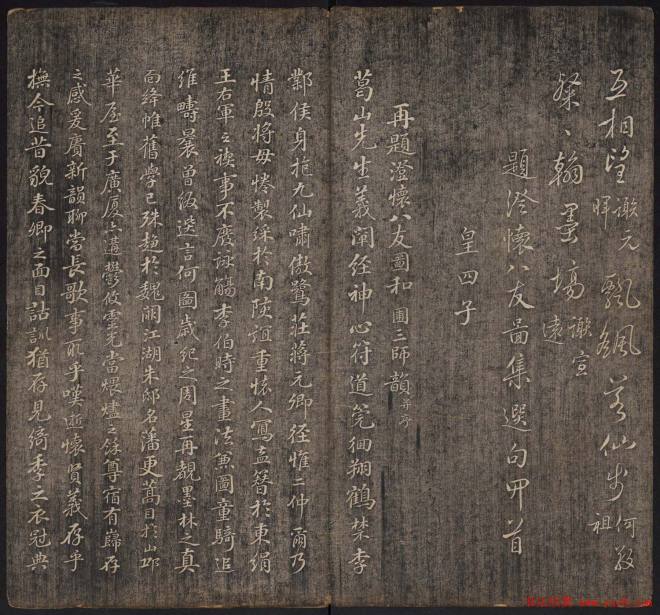 互相望 謝元暉 飄颻若仙步 何敬祖
粲〻翰墨場 謝宣遠
題澄懷八友圖集選句四首
皇四子
再題澄懷八友圖和圃三師韻 并序
葛山先生義闡經神心符道筦細翔鶴禁李
鄴侯身抱九仙嘯傲鷺莊蔣元卿徑惟二仲爾乃
情殷將母惓製綵於南陔誼重懷人寫盍簪於東絹
王右軍之禊事不廢詠觴李伯時之畫法兼圖童騎追
維疇曩曾綴選言何圖歲紀之周星再覩墨林之真
面絳帷舊學已殊趨於魏闕江湖朱邸名藩更蒿目於山邱
華屋至于廣厦溝鬱攸靈光當煨燼之餘尊宿有巋存
之感爰賡新韻聊當長歌事取乎嘆逝懷賢義存乎
撫今追昔貌春卿之面目詁訓猶存見綺季之衣冠典